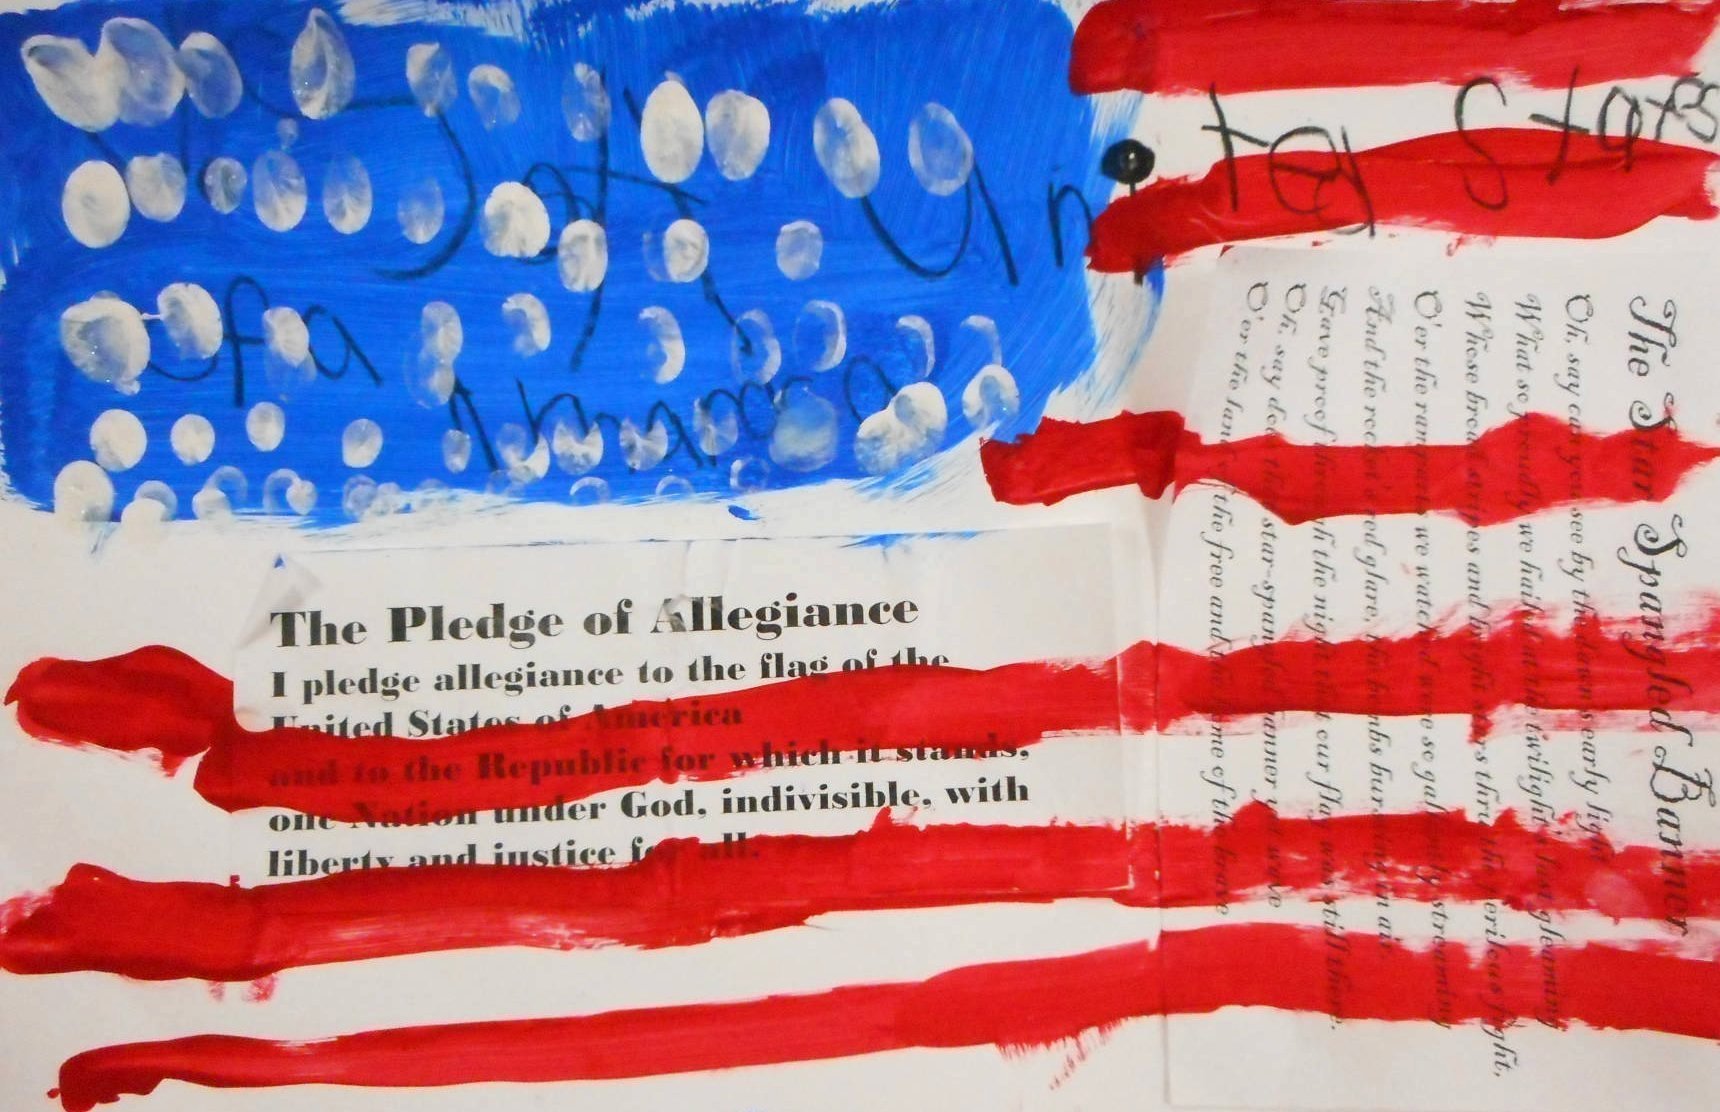 United Stats
of a
The Pledge of Allegiance
I pledge allegiance to the flag of the
United States of America
and to the Republic for which it stands,
one Nation under God, indivisible, with
liberty and justice for all.
The Star Spangled Banner
Oh, say can you see by the dawn's early light
What so proudly we hailed at the twilight's last gleaming
Whose broad stripes and bright stars thru the perilous fight,
O'er the ramparts we watched were so gallantly streaming
And the rocket's red glare, the bombs bursting in air.
Gave proof through the night that our flag was still there.
Oh, say does that star-spangled banner yet wave
O'er the land of the free and the home of the brave